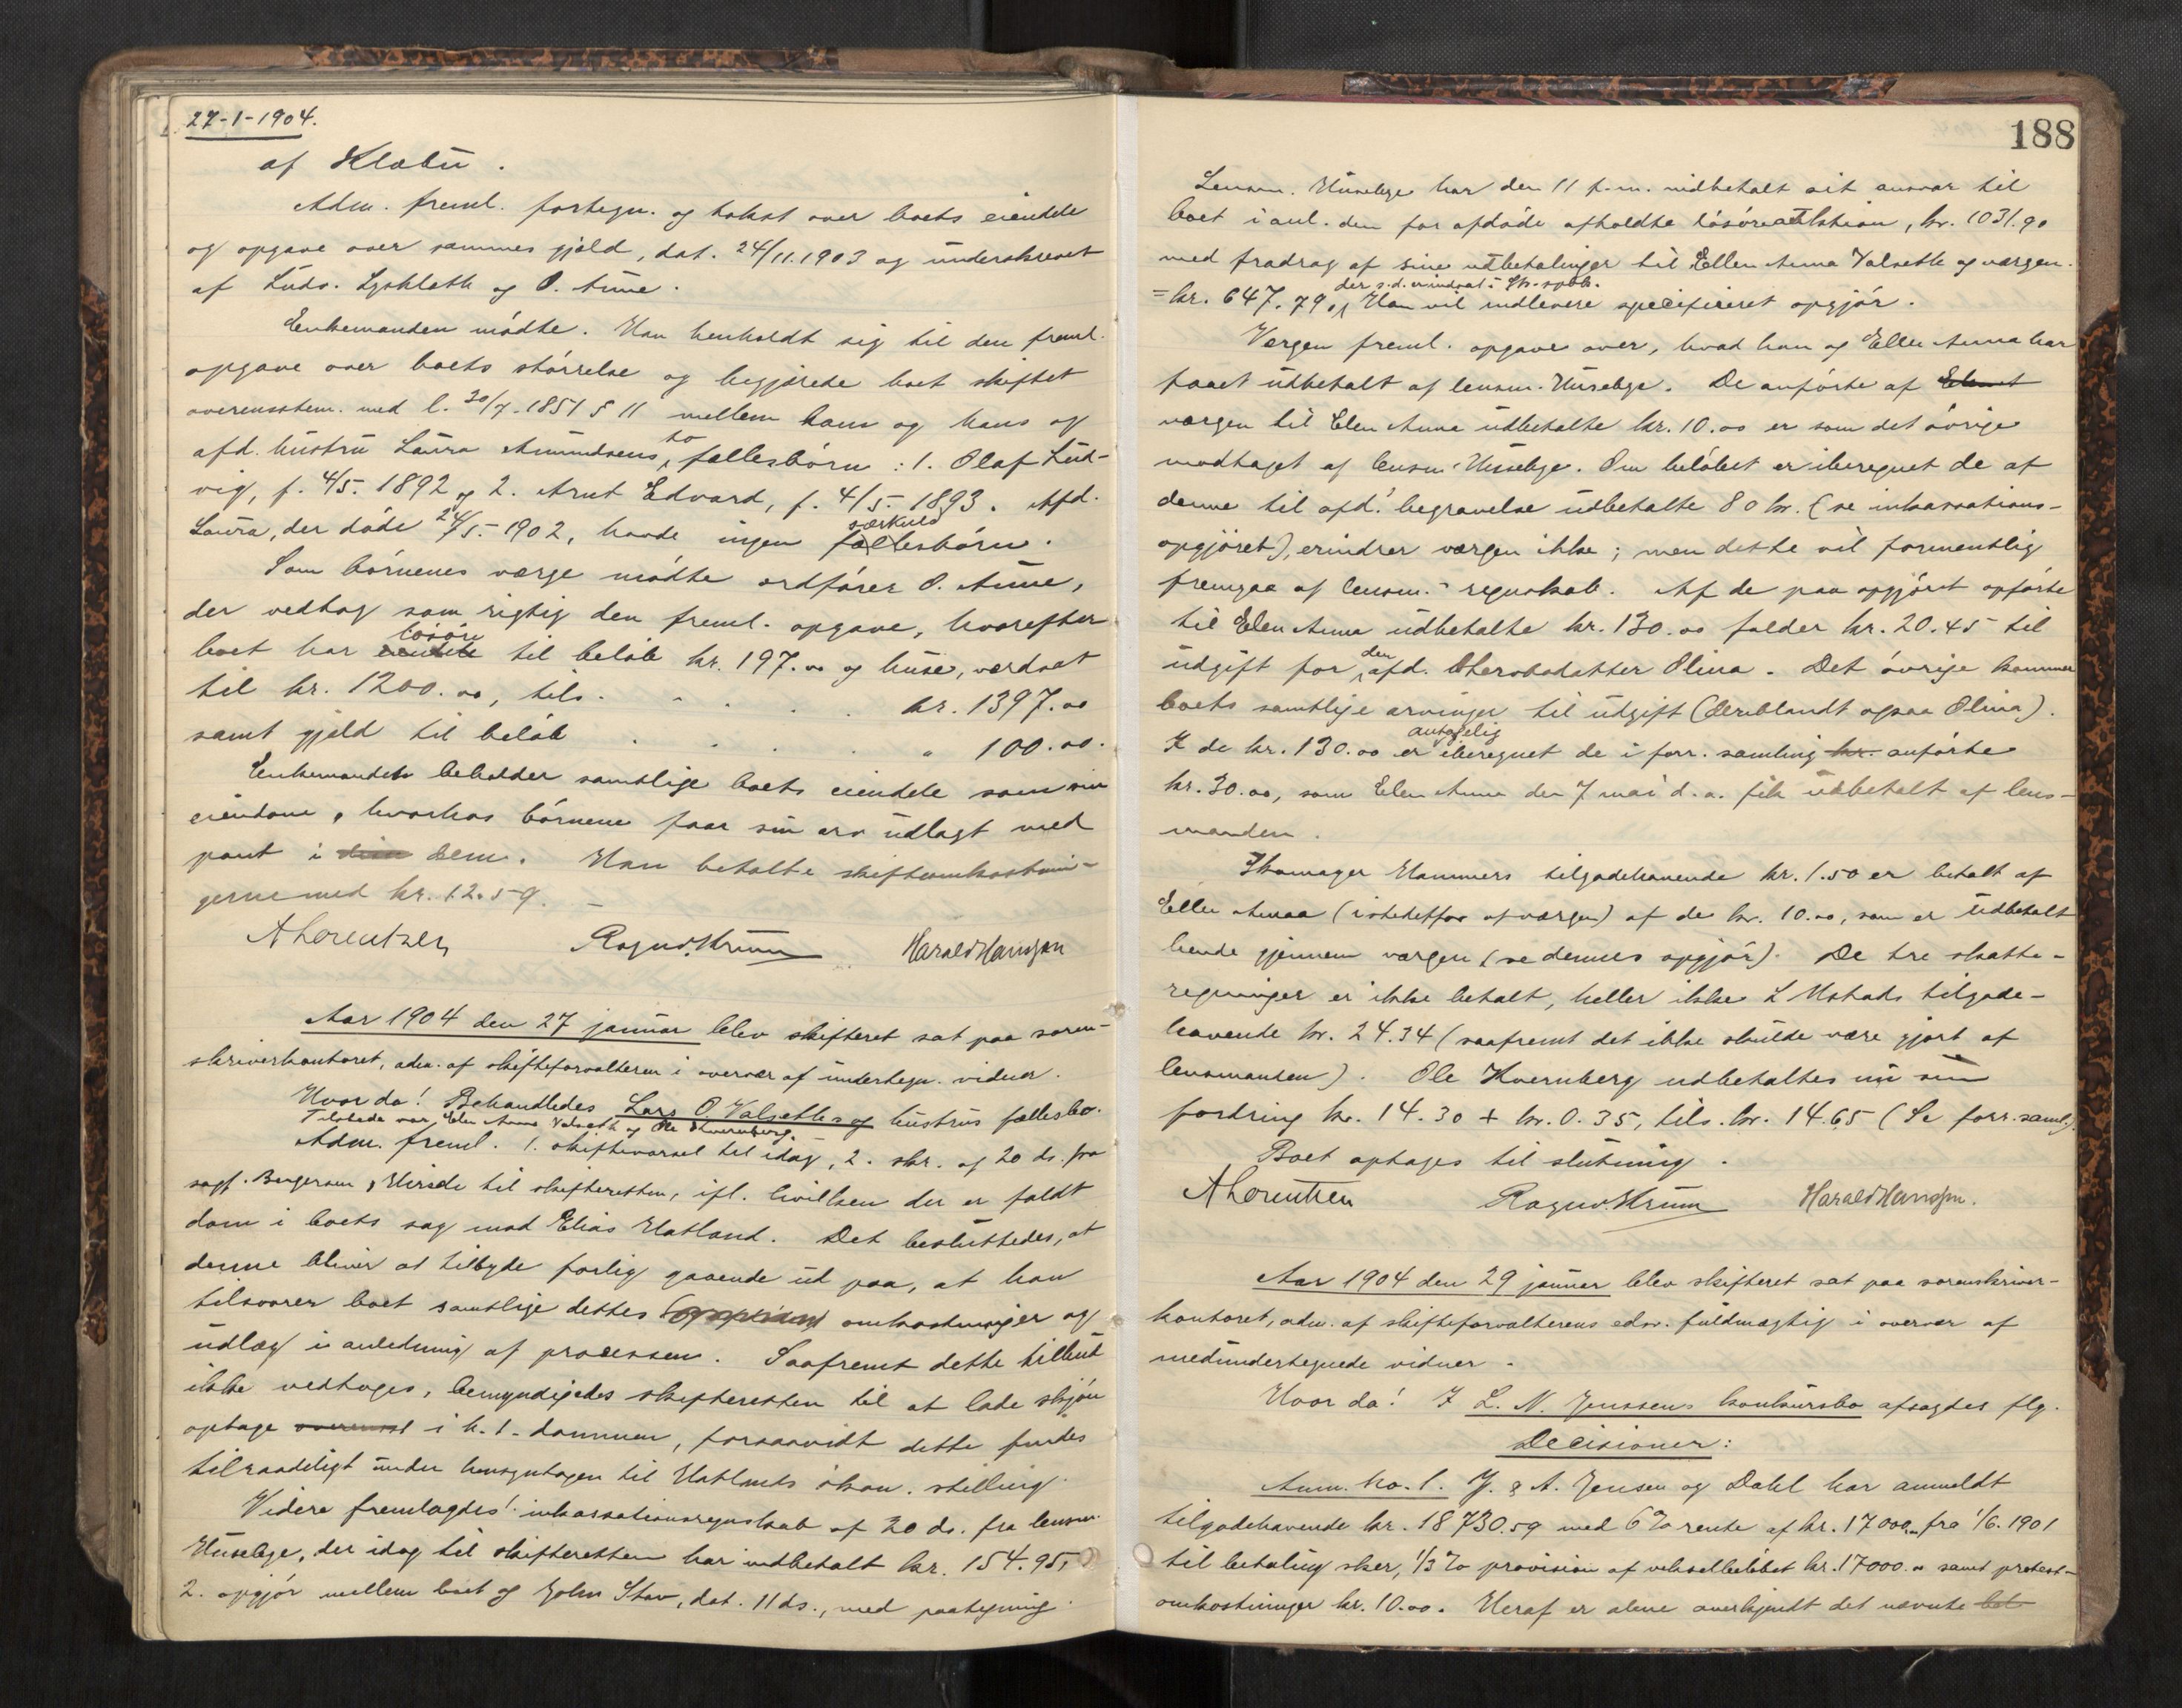 27-1-1904.
af Klæbu.
Adm. freml. fortegn. og takst over boets eiendele
og opgave over sammes gjæld, dat. 24/11.1903 og underskrevet
af Ludv. Lysklæth og O. Aune.
Enkemanden mødte. Han henholdt sig til den freml.
opgave over boets størrelse og begjærede boet skiftet
overensstem. med l. 30/7-1851 § 11 mellem ham og hans og
afd. hustru Laura Amundsens to fællesbørn: 1. Olaf Lud-
vig, f. 4/5. 1892 og 2. Arnt Edvard, f. 4/5. 1893. Afd.
Laura, der døde 24/5-1902, havde ingen særkuldsbørn.
Som børnenes værge mødte ordfører O. Aune,
der vedtog som rigtig den freml. opgave, hvorefter
boet har løsøre til beløb kr. 197.00 og huse, værdsat
til kr. 1200.00, tils. . . . . kr. 1397.00
samt gjæld til beløb . . . . " 100.00.
Enkemanden beholder samtlige boets eiendele som sin
eiendom, hvorhos børnene faar sin arv udlagt med
pant i dem. Han betalte skifteomkostnin-
gerne med kr. 12.59. —
A Lorentzen Ragnv. Krum Harald Hanssen
Aar 1904 den 27 januar blev skifteret sat paa soren-
skriverkontoret, adm. af skifteforvalteren i overvær af undertegn. vidner.
Hvor da! Behandledes Lars O. Valseths og hustrus fællesbo.
Tilstede var Elen Anna Valseth og Ole Kvernberg.
Adm. freml. 1. skiftevarsel til idag, 2. skr. af 20 ds. fra
sagf. Bergersen & Hirsch til skifteretten, ifl. hvilken der er faldt
dom i boets sag mod Elias Hatland. Det besluttedes, at
denne bliver at tilbyde forlig gaaende ud paa, at han
tilsvarer boet samtlige dettes omkostninger og
udlæg i anledning af processen. Saafremt dette tilbud
ikke vedtages, bemyndigedes skifteretten til at lade skjøn
optage overensst i h. t. dommen, forsaavidt dette findes
tilraadeligt under hensyntagen til Hatlands økon. stilling.
Videre fremlagdes! inkassationsregnskab af 20 ds. fra lensm.
Huseby, der idag til skifteretten har indbetalt kr. 154.95,
2. opgjør mellem boet og John Stav, dat. 11 ds., med paategning.
188
Lensm. Huseby har den 11 f.m. indbetalt sit ansvar til
boet i anl. den for afdøde afholdte løsøreauktion, kr. 1031.90
med fradrag af sine udbetalinger til Ellen Anna Valseth og værgen.
der s.d. er indsat i Sk. spbk.
= kr. 647.79, Han vil indlevere specificeret opgjør.
Værgen freml. opgave over, hvad han og Ellen Anna har
faaet udbetalt af lensm. Huseby. De anførte af
værgen til Elen Anna udbetalte kr. 10.00 er som det øvrige
modtaget af lensm. Huseby. Om beløbet er iberegnet de af
denne til afd.' begravelse udbetalte 80 kr. (se inkassations-
opgjøret), erindrer værgen ikke; men dette vil formentlig
fremgaa af lensm.s regnskab. Af de paa opgjøret opførte
til Elen Anna udbetalte kr. 130.00 falder kr. 20.45 til
udgift for den afd. Olina. Det øvrige kommer
boets samtlige arvinger til udgift (deriblandt ogsaa Olina).
antagelig
I de kr. 130.00 er iberegnet de i forr. samling kr. anførte
kr. 30.00, som Elen Anna den 7 mai d.a. fik udbetalt af lens-
manden.
Skomager Hammers tilgodehavende kr. 1.50 er betalt af
Ellen Anna (istedetfor af værgen) af de kr. 10.00, som er udbetalt
hende gjennem værgen (se dennes opgjør). De tre skatte-
regninger er ikke betalt, heller ikke L tilgode-
havende kr. 24.34 (saafremt det ikke skulde være gjort af
lensmanden). Ole Kvernberg udbetaltes nu sin
fordring kr. 14.30 + kr. 0.35, tils. kr. 14.65 (Se forr. saml.).
Boet optages til slutning.
A Lorentzen Ragnv. Krum Harald Hanssen.
Aar 1904 den 29 januar blev skifteret sat paa sorenskriver-
kontoret, adm. af skifteforvalterens edsv. fuldmægtig i overvær af
medundertegnede vidner.
Hvor da! I L. N. Jenssens konkursbo afsagdes flg.
Decisioner:
Anm. No. 1. J. & A. Jensen og Dahl har anmeldt
tilgodehavende kr. 18730.59 med 6% rente af kr. 17000,- fra 1/6. 1901
til betaling sker, 1/3 % provision af vekselbeløbet kr. 17000.00 samt protest-
omkostninger kr. 10.00. Heraf er alene anerkjendt det nævnte bel-